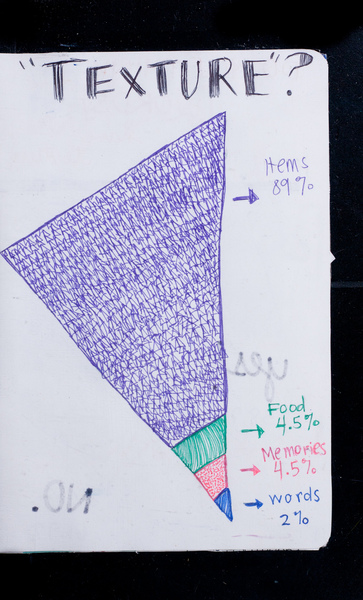 "TEXTURE"?
Items
89%
Food
4.5%
Memories
4.5%
words
2%
yes
NO.